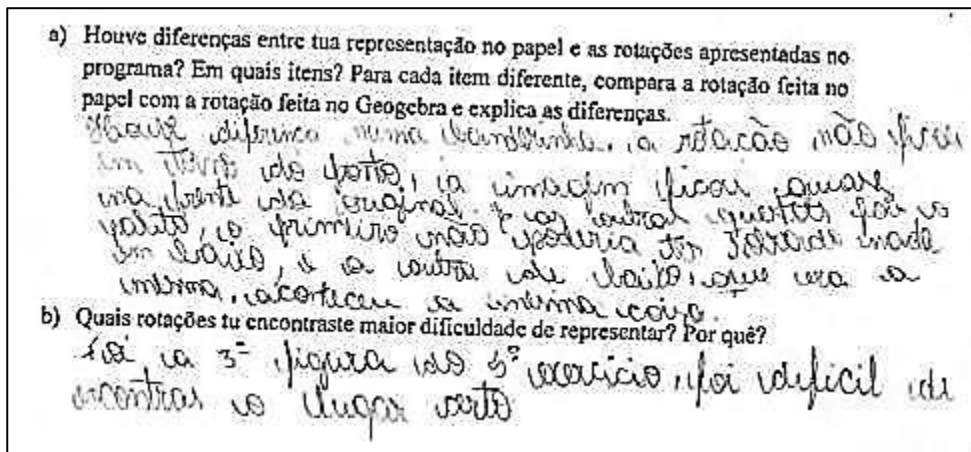 a) Houve diferenças entre tua representação no papel e as rotações apresentadas no
programa? Em quais itens? Para cada item diferente, compara a rotação feita no
papel com a rotação feita no Geogebra e explica as diferenças.
Houve diferença numa bandeirinha, a rotação não ficou
em do ponto, a imagem ficou quase
na frente da original. E as outras questões foi o
palito, o primeiro não poderia ter nada
em baixo, e a outra de baixo, que era a
mesma, aconteceu a mesma coisa.
b) Quais rotações tu encontraste maior dificuldade de representar? Por quê?
Foi a 3ª figura do 5º exercício, foi dificil de
encontrar o lugar certo